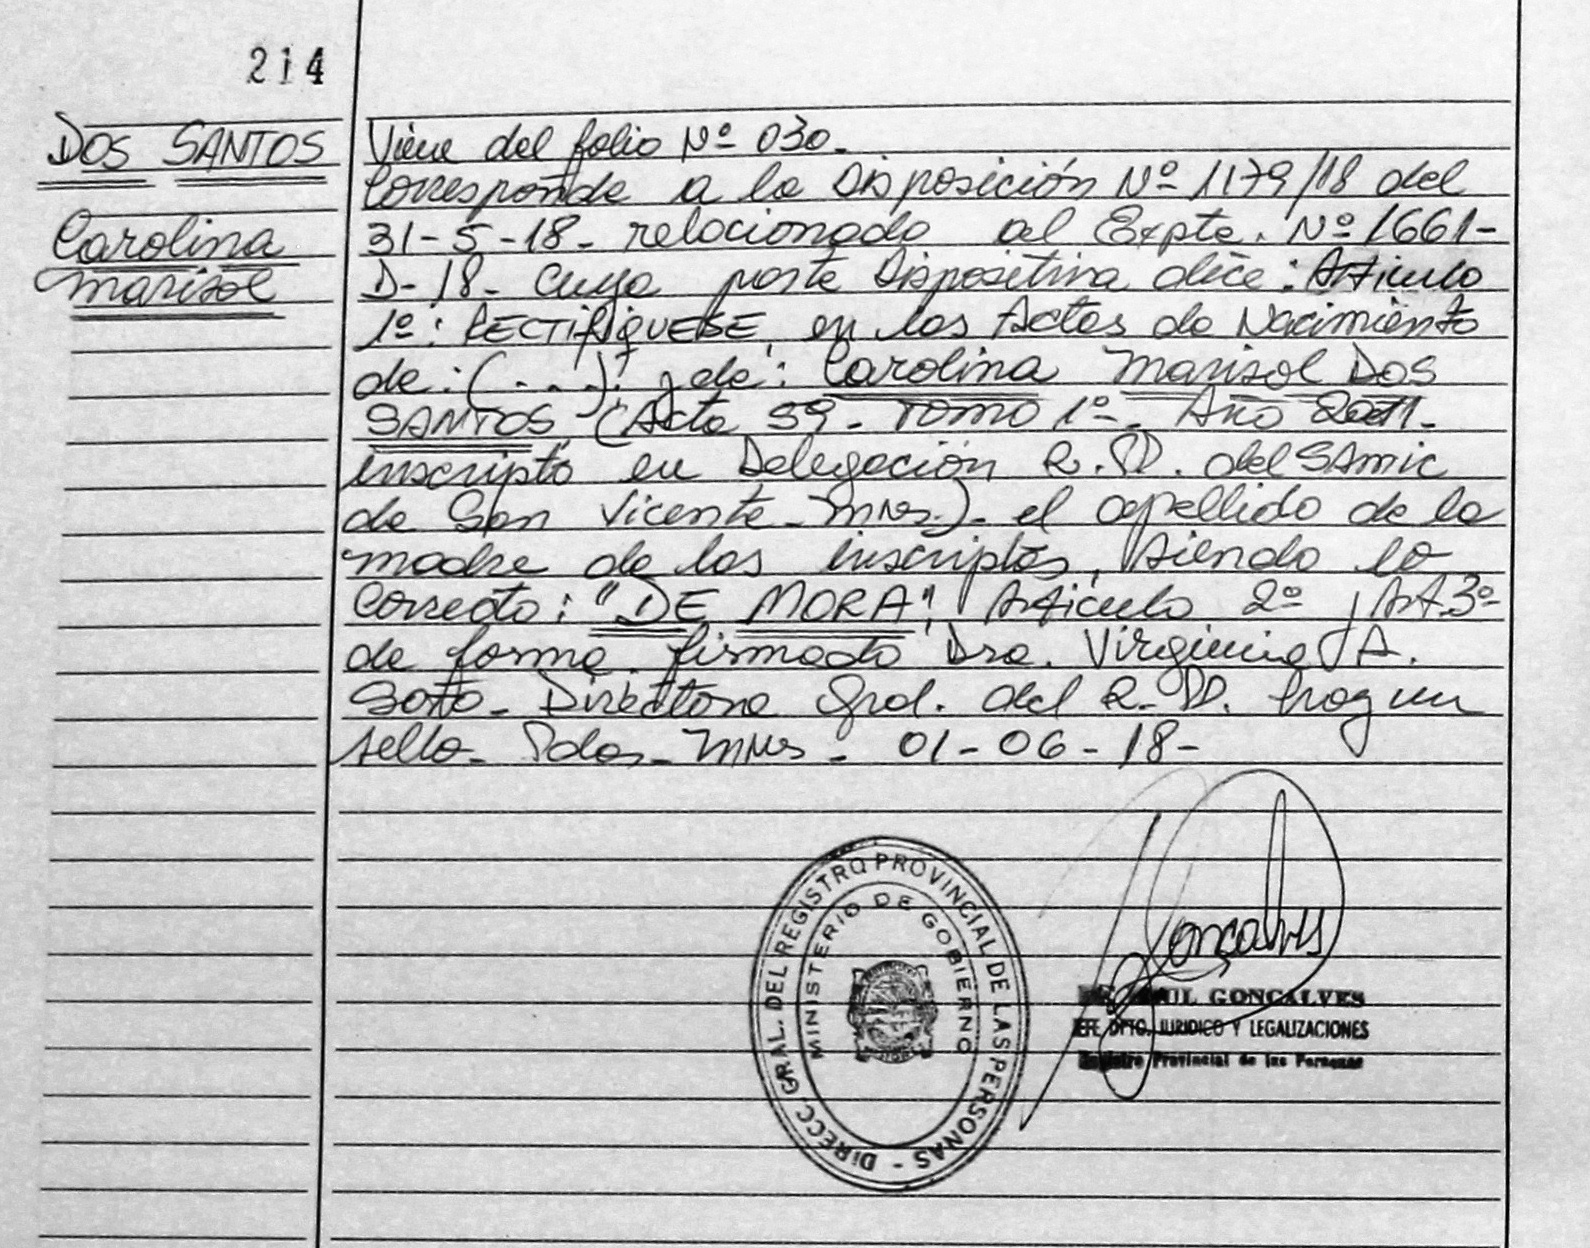 214
DOS SANTOS
Carolina
Marisol
Viene del folio Nº 030.
Corresponde a la Disposición Nº 1179/18 del
31-5-18- relacionado al Expte. Nº 1661-
D-18- cuya parte Dispositiva dice: Artículo
1º: RECTIFIQUESE, en las Actas de Nacimiento
de: (...); y de: Carolina Marisol DOS
SANTOS" (Acta 39- Tomo 1º- Año 2011-
inscripta en Delegación R.P. del SAMIC
de San Vicente- Mnes.)- el apellido de la
madre de los inscriptos, siendo lo
correcto: "DE MORA"; Artículo 2º y Art 3º
de forma. firmado Dra. Virginia A.
Soto- Directora Gral. del R.P. hay un
sello- Pdas- Mnes- 01-06-18-
DIRECC. GRAL. DEL REGISTRO PROVINCIAL DE LAS PERSONAS -
MINISTERIO DE GOBIERNO
Goncalves
RAUL GONCALVES
JEFE DPTO. JURIDICO Y LEGALIZACIONES
Registro Provincial de las Personas